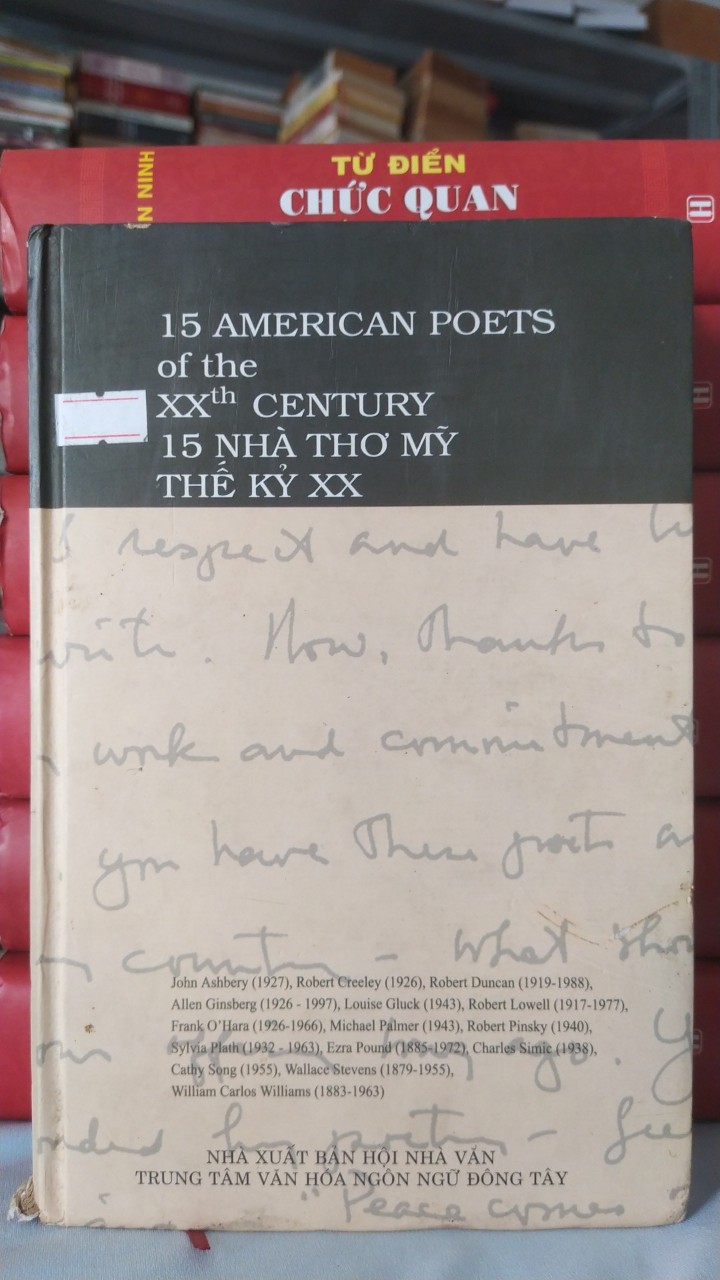 TỪ ĐIỂN
CHỨC QUAN
N NINH
H
H
H
15 AMERICAN POETS
of the
XXth CENTURY
15 NHÀ THƠ MỸ
THẾ KỶ XX
respect and have
write. Now, thanks to
work and commitment
you have these poets
country - what
John Ashbery (1927), Robert Creeley (1926), Robert Duncan (1919-1988),
Allen Ginsberg (1926 - 1997), Louise Gluck (1943), Robert Lowell (1917-1977),
Frank O'Hara (1926-1966), Michael Palmer (1943), Robert Pinsky (1940),
Sylvia Plath (1932 - 1963), Ezra Pound (1885-1972), Charles Simic (1938),
Cathy Song (1955), Wallace Stevens (1879-1955),
William Carlos Williams (1883-1963)
ago.
poetry -
NHÀ XUẤT BẢN HỘI NHÀ VĂN
TRUNG TÂM VĂN HÓA NGÔN NGỮ ĐÔNG TÂY
"Peace comes"